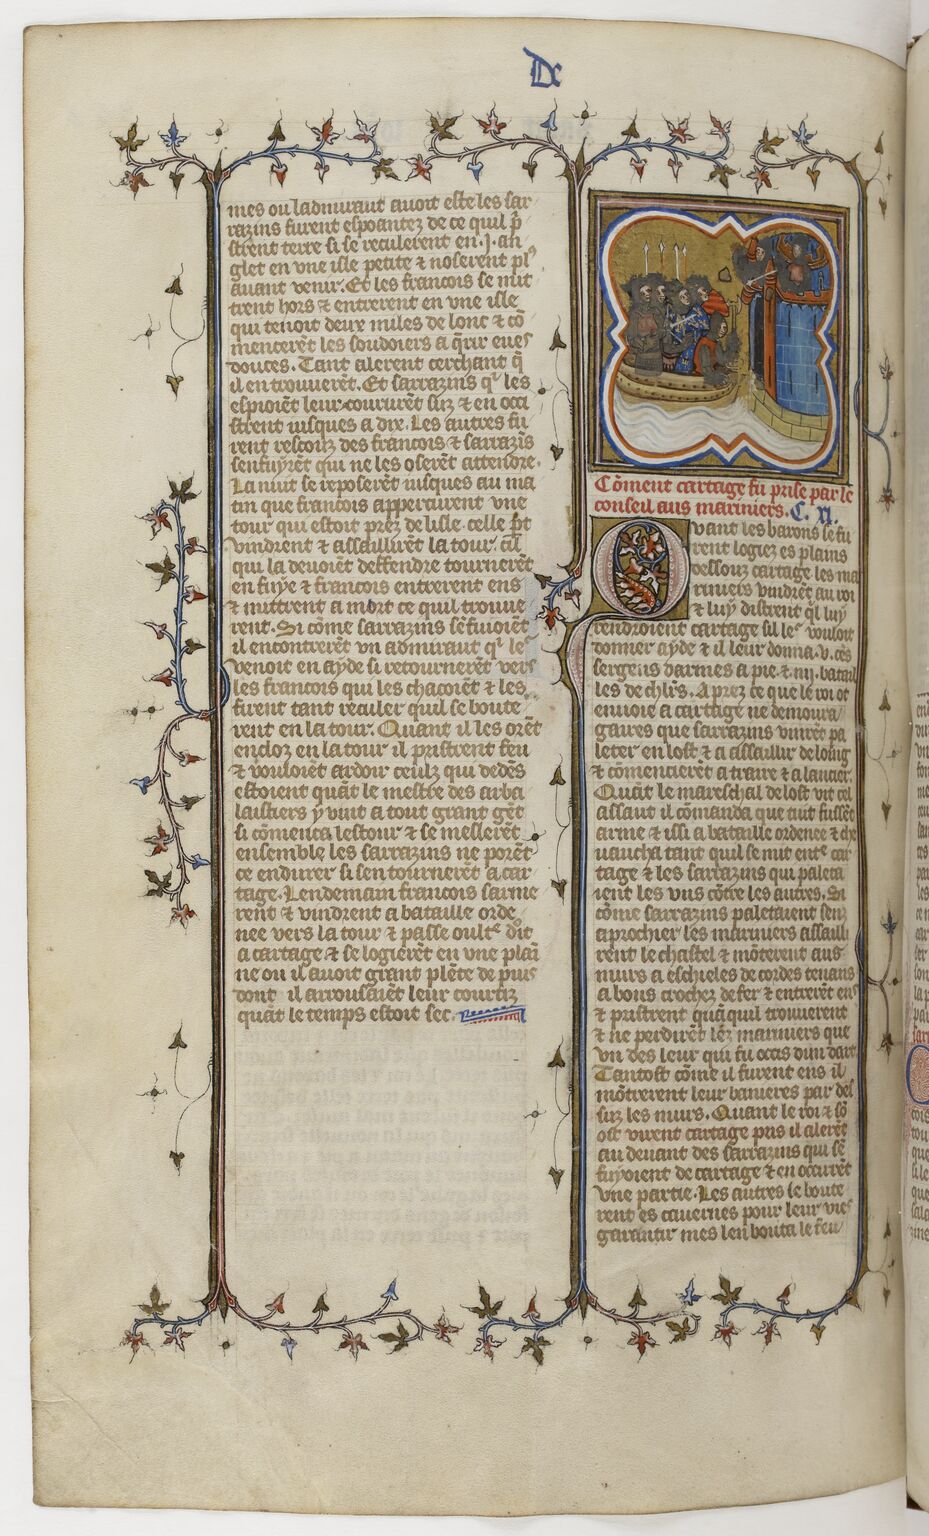 De
mes ou ladmiraut auoit este les sar
razins furent espoantez de ce quil p̄
strent terre si se reculerent en .j. an
glet en vne isle petite ⁊ noserent pl⁹
auant venir. Et les francois se mit
trent hors ⁊ entrerent en vne isle
qui tenoit deux miles de lonc ⁊ cō
mencerēt les soudoiers a q̄rir eues
douces. Tant alerent cerchant q̄
il en trouuerēt. Et sarrazins qͥ les
espioiēt leur coururēt suz ⁊ en occi
strent iusques a dix. Les autres fu
rent rescouz des francois ⁊ sarrazīs
senfuyrēt qui ne les oserēt attendre.
La nuit se reposerēt iusques au ma
tin que francois apperturent vne
tour qui estoit prez de lisle. celle pt̄
vindrent ⁊ assaillirēt la tour. cil
qui la deuoiēt deffendre tournerēt
en fuye ⁊ francois entrerent ens
⁊ mittrent a mort ce quil trouue
rent. Si cōme sarrazins sēfuioiēt
il encontrerēt vn admiraut qͥ leˢ
venoit en ayde si retournerēt vers
les francois qui les chacoiēt ⁊ les
firent tant reculer que se boute
rent en la tour. Quant il les orēt
encloz en la tour il pristrent feu
⁊ vouloiēt ardoir ceulz qui dedēs
estoient quāt le mestre des arba
lastiers y vint a tout grant gēt
si cōmenca lestour ⁊ se meslerēt
ensemble les sarrazins ne porēt
ce endurer si sen tournerēt a car
tage. Lendemain francois sarme
rent ⁊ vindrent a bataille orde
nee vers la tour ⁊ passe oultᵉ dit
a cartage ⁊ se logierēt en vne plai
ne ou il auoit grant plēte de puis
dont il arrousaiēt leur courtiz
quāt le temps estoit sec.
Cōment cartage fu prise par le
conseil aus mariniers. C. xi.
Quant les barons se fu
rent logiez es plains
dessouz cartage les ma
riniers vindrēt au roi
⁊ luy distrent ql̄ luy
rendroient cartage sil leˢ vouloit
donner ayde ⁊ il leur donna .v. cēs
sergens darmes a pie ⁊ .iiij. batail
les de chl̄rs. Aprez ce que le roi ot
enuoie a cartage ne demoura
gaires que sarrazins vinrēt pa
leter en lost ⁊ a assaillir de loīg
⁊ cōmencierēt a traire ⁊ a lancier.
Quāt le mareschal de lost vit cel
assaut il cōmanda que tuit fussēt
arme ⁊ issi a bataille ordenee ⁊ che
uaucha tant quil se mit entᵉ car
tage ⁊ les sarrazins qui paleta
ient les vns cōtre les autres. Si
cōme sarrazins paletaient senz
aprochier les mariniers assailli
rent le chastel ⁊ mōterent aus
murs a eschieles de cordes tenans
a bons crochez de fer ⁊ entrerēt enˢ
⁊ pristrent quāquil trouuerent
⁊ ne perdirēt lez mariniers que
vn des leur qui fu occis dun dart
Tantost cōme il furent ens il
mōtrerent leur banieres par des
suz les murs. Quant le roi ⁊ sō
ost virent cartage pris il alerēt
au deuant des sarrazins qui sē
fuyoient de cartage ⁊ en occirēt
vne partie. Les autres se boute
rent es cauernes pour leur vieˢ
garantir mes len bouta le feu